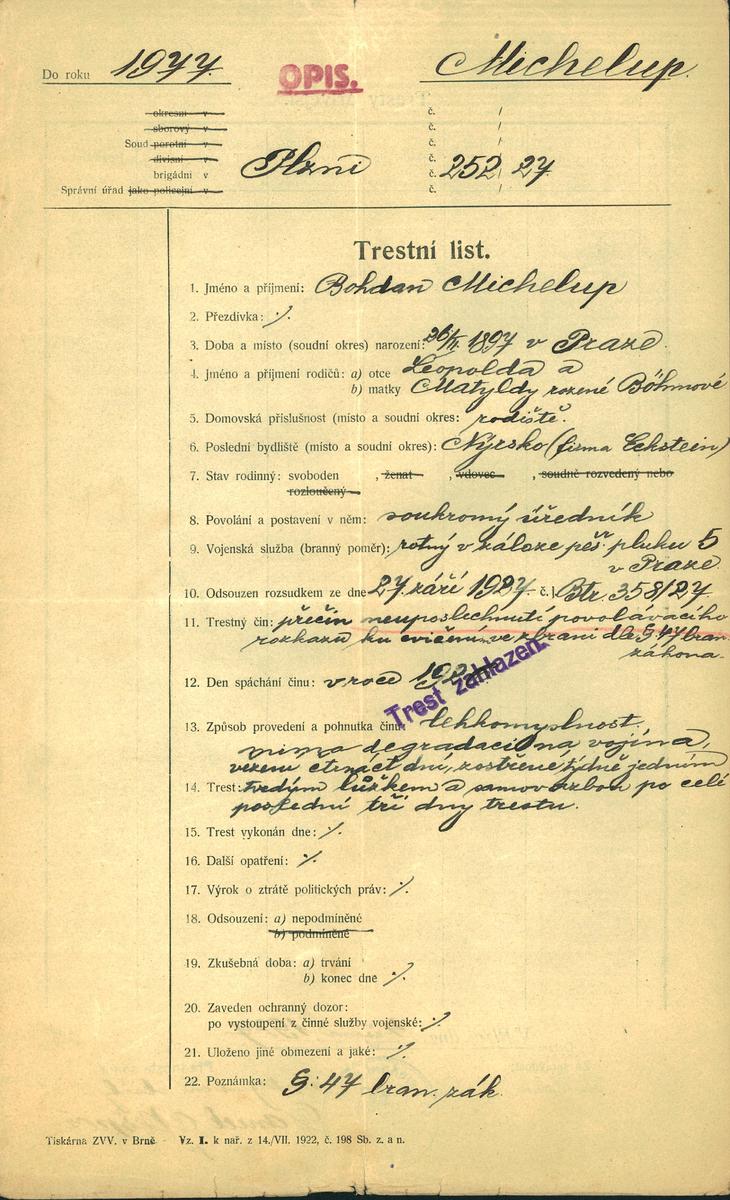 Do roku 1977. OPIS. Michelup.
okresní v č. /
sborový v č. /
Soud porotní v č. /
divisní v Plzni č. 252/27
brigádní v č. /
Správní úřad jako policejní v č. /
Trestní list.
1. Jméno a příjmení: Bohdan Michelup
2. Přezdívka: ·/.
3. Doba a místo (soudní okres) narození: 26/II. 1897 v Praze.
4. Jméno a příjmení rodičů: a) otce Leopolda a
b) matky Matyldy rozené Böhmové
5. Domovská příslušnost (místo a soudní okres: rodiště.
6. Poslední bydliště (místo a soudní okres): Nýrsko (firma Eckstein)
7. Stav rodinný: svoboden , ženat , vdovec , soudně rozvedený nebo
rozloučený
8. Povolání a postavení v něm: soukromý úředník
9. Vojenská služba (branný poměr): rotný v záloze pěš. pluku 5
v Praze.
10. Odsouzen rozsudkem ze dne 27. září 1927. č. j. Btr. 358/27.
11. Trestný čin: přečin neuposlechnutí povolávacího
rozkazu ku cvičení ve zbrani dle §. 47 bran.
zákona.
12. Den spáchání činu: v roce
Trest zahlazen.
13. Způsob provedení a pohnutka činu: lehkomyslnost.
mimo degradaci na vojína,
vězení čtrnáct dní, zostřené týdně jedním
14. Trest: tvrdým lůžkem a samovazbou po celé
poslední tři dny trestu.
15. Trest vykonán dne: ·/.
16. Další opatření: ·/.
17. Výrok o ztrátě politických práv: ·/.
18. Odsouzení: a) nepodmíněné
b) podmíněné
19. Zkušebná doba: a) trvání
b) konec dne ·/.
20. Zaveden ochranný dozor:
po vystoupení z činné služby vojenské: ·/.
21. Uloženo jiné obmezení a jaké: ·/.
22. Poznámka: §. 47 bran. zák.
Tiskárna ZVV. v Brně - Vz. I. k nař. z 14./VII. 1922, č. 198 Sb. z. a n.